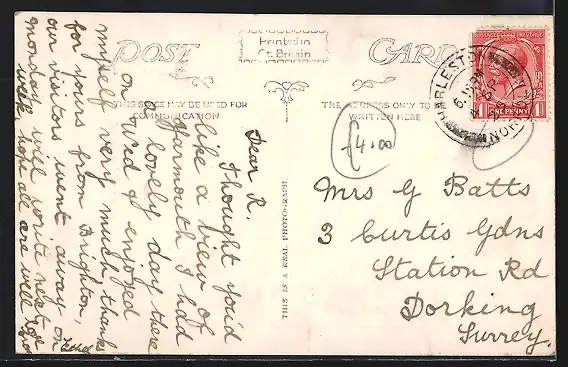 POST CARD
Printed in
Gt. Britain
THIS SPACE MAY BE USED FOR
COMMUNICATION
THE ADDRESS ONLY TO BE
WRITTEN HERE
£4.00
POSTAGE REVENUE
ONE PENNY
HARLESTON
6.15 PM
NORFOLK
THIS IS A REAL PHOTOGRAPH.
Dear R.
I thought you'd
like a view of
Yarmouth I had
a lovely day there
on Wed & enjoyed
myself very much, thanks
for yours from Brighton,
our visitors went away on
Monday, will write next
week hope all are well love
Ethel
Mrs G Batts
3 Curtis Gdns
Station Rd
Dorking
Surrey.